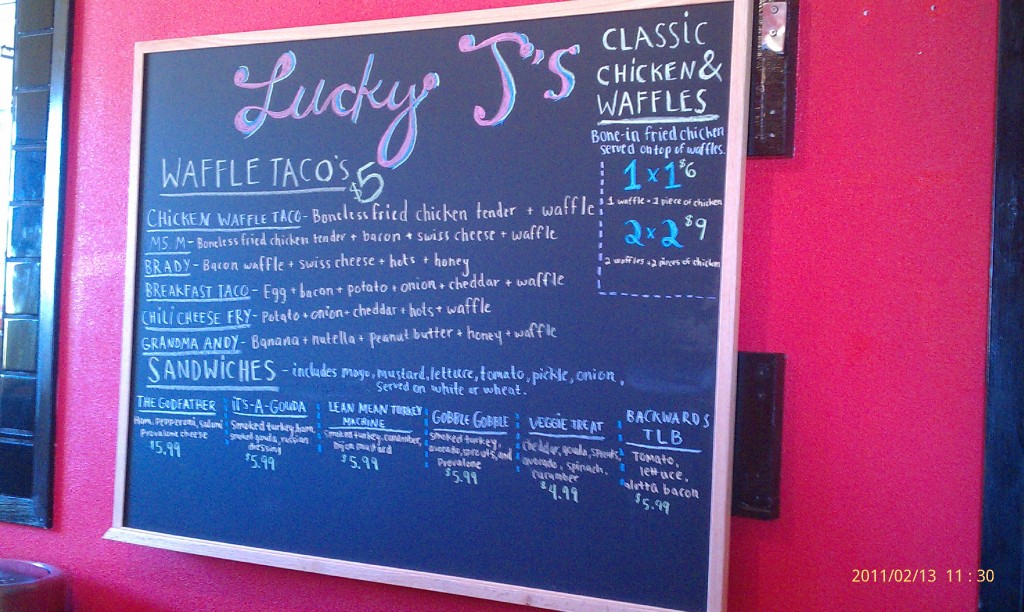 Lucky J's
CLASSIC
CHICKEN &
WAFFLES
Bone-in fried chicken
served on top of waffles.
1 x 1 $6
1 waffle + 1 piece of chicken
2 x 2 $9
2 waffles + 2 pieces of chicken
WAFFLE TACO'S $5
CHICKEN WAFFLE TACO - Boneless fried chicken tender + waffle
MS. M - Boneless fried chicken tender + bacon + swiss cheese + waffle
BRADY - Bacon waffle + swiss cheese + hots + honey
BREAKFAST TACO - Egg + bacon + potato + onion + cheddar + waffle
CHILI CHEESE FRY - Potato + onion + cheddar + hots + waffle
GRANDMA ANDY - Banana + nutella + peanut butter + honey + waffle
SANDWICHES - includes mayo, mustard, lettuce, tomato, pickle, onion.
Served on white or wheat.
THE GODFATHER
Ham, pepperoni, salami
Provalone cheese
$5.99
IT'S-A-GOUDA
Smoked turkey, ham,
smoked gouda, russian
dressing
$5.99
LEAN MEAN TURKEY
MACHINE
Smoked turkey, cucumber,
dijon mustard
$5.99
GOBBLE GOBBLE
smoked turkey,
avocado, sprouts, and
Provalone
$5.99
VEGGIE TREAT
cheddar, gouda, sprouts,
avocado, spinach,
cucumber
$4.99
BACKWARDS
TLB
Tomato,
lettuce,
alotta bacon
$5.99
2011/02/13 11:30